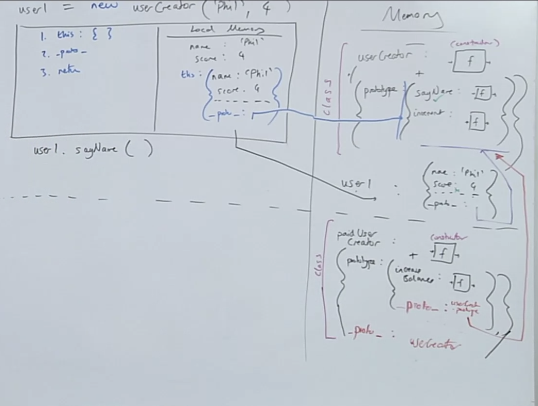 user1 = new userCreator('Phil', 4)
1. this: { }
2. _proto_
3. return
Local Memory
name : 'Phil'
score : 4
this : { name : 'Phil'
score : 4
_proto_ : }
user1. sayName ( )
Memory
class
(constructor)
userCreator : f
+
{ prototype : { sayName : f
increment : f } }
user1 : { name : 'Phil'
score : 4
_proto_ : }
class
paidUser
Creator :
constructor
+ f
{ prototype : { increase
Balance : f
_proto_ : userCreator
. prototype } }
_proto_ : userCreator